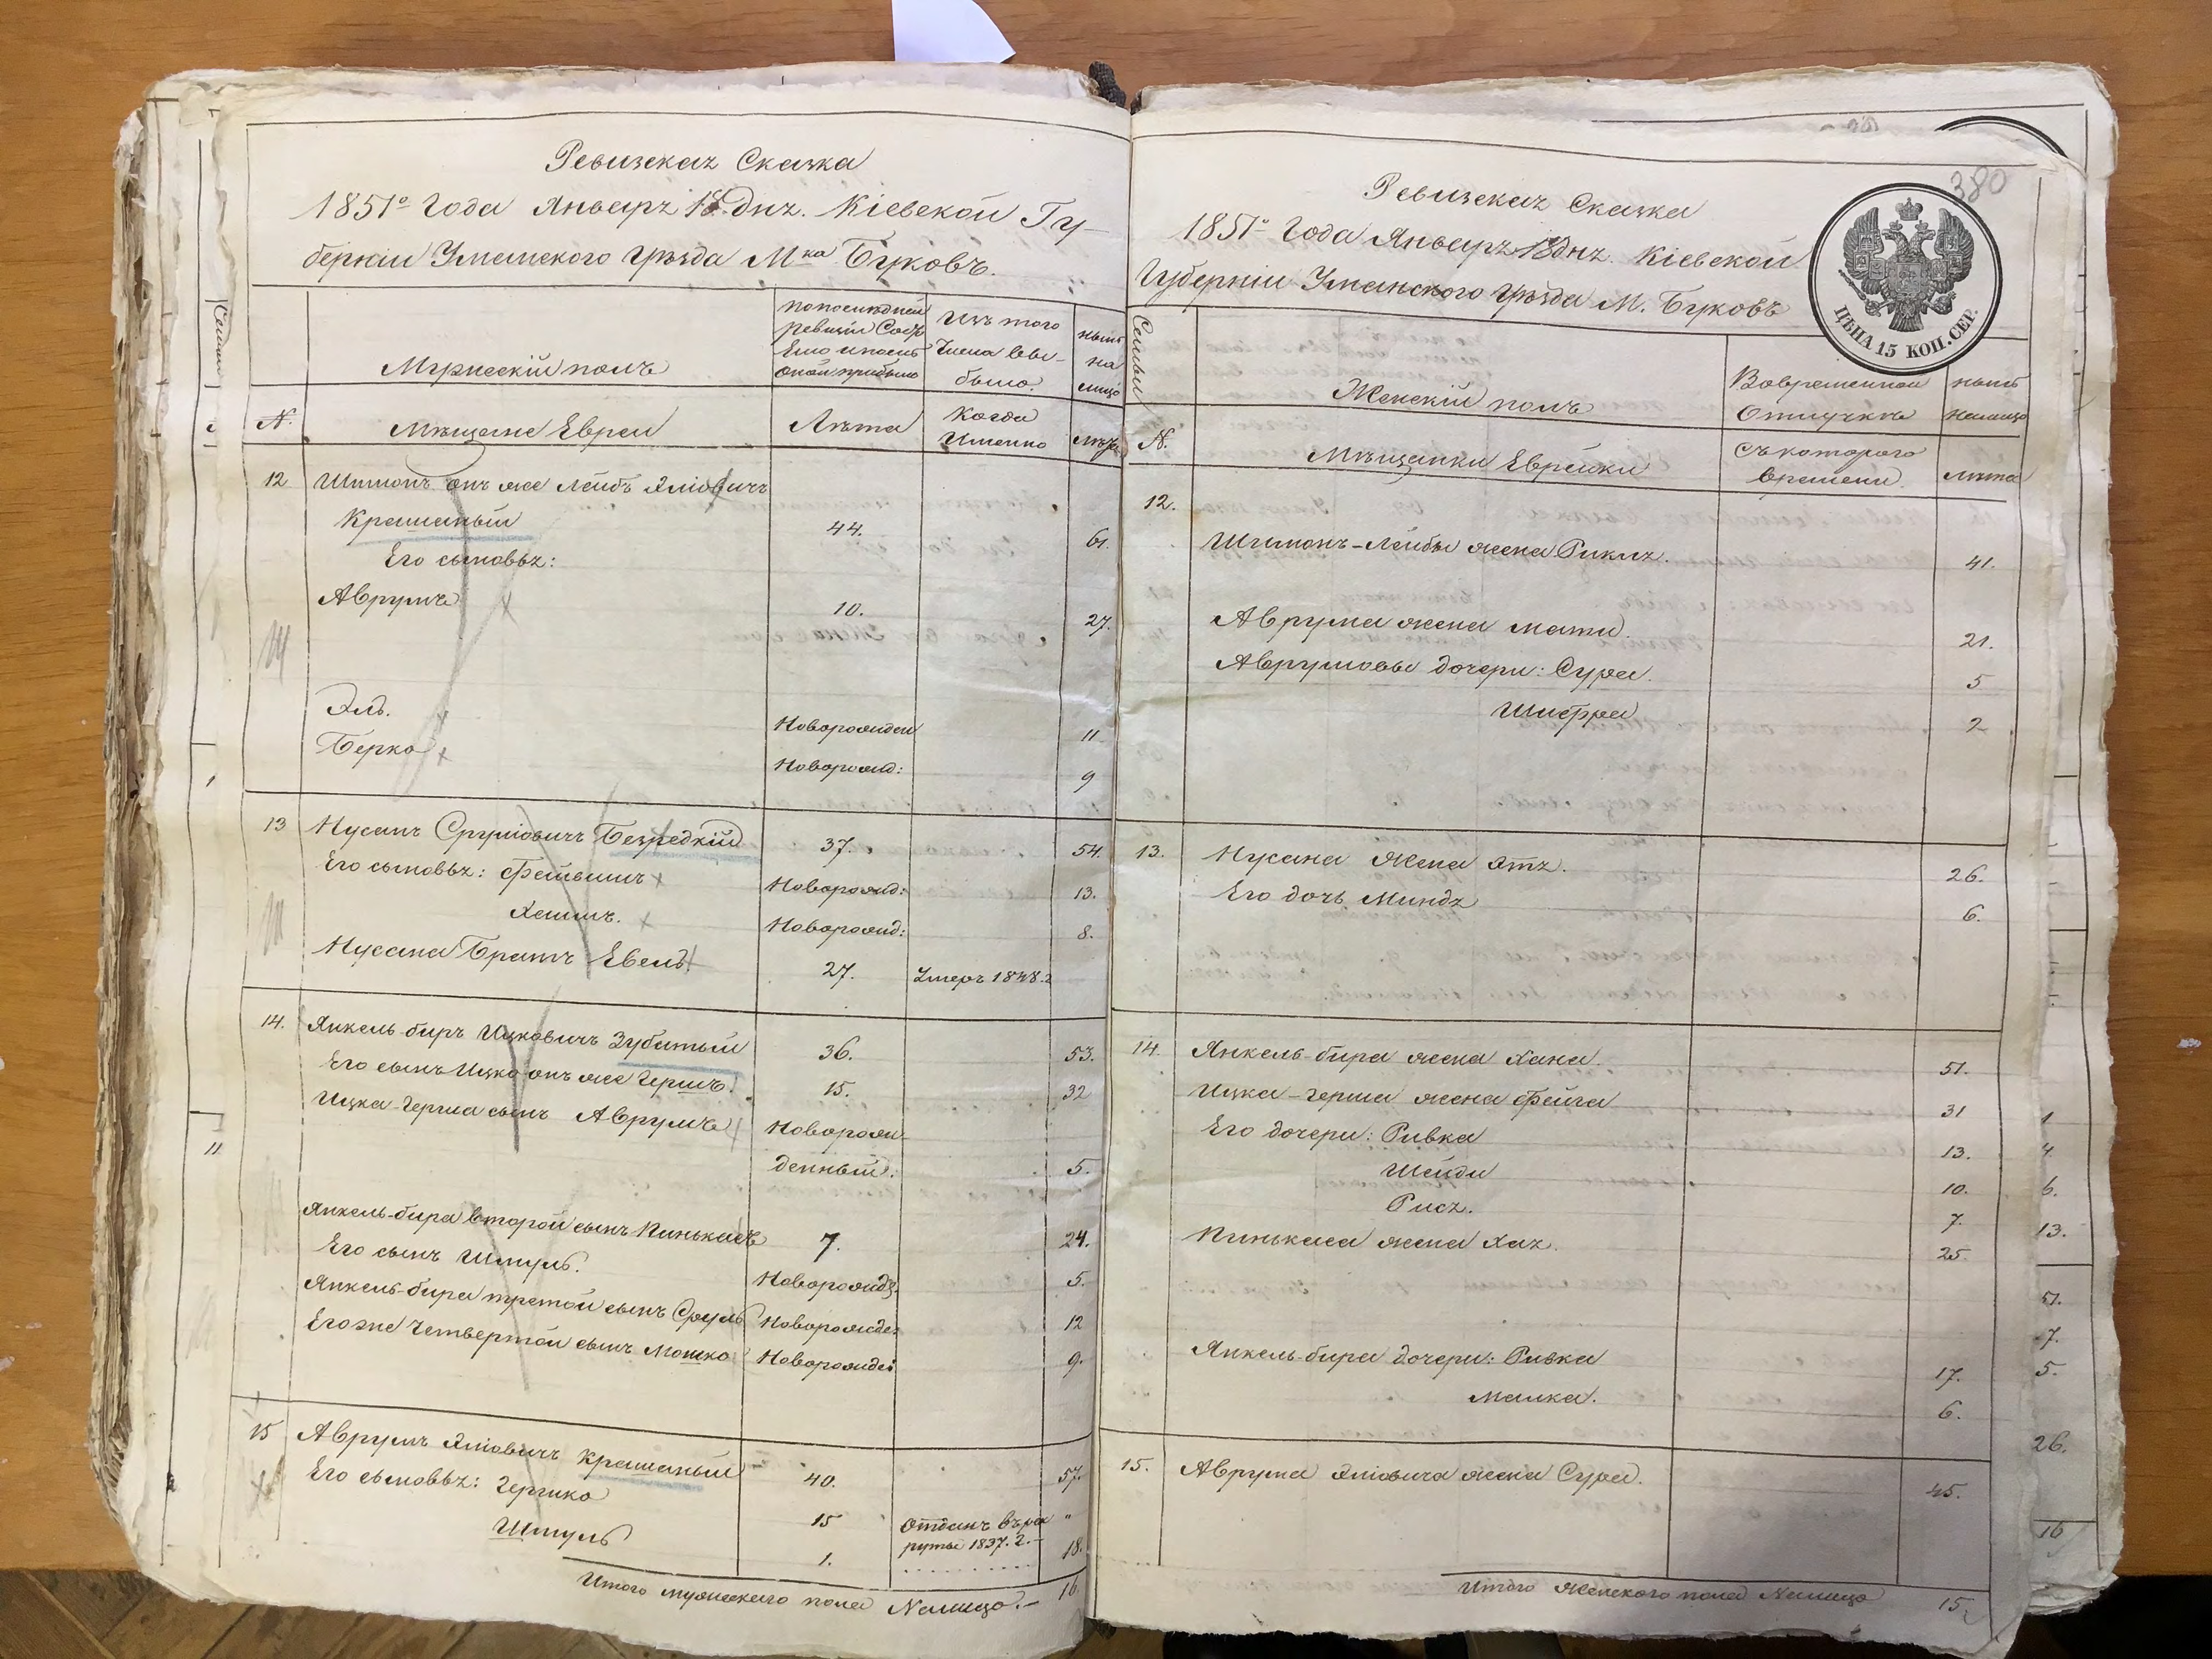 Ревизская Сказка
1851º Года Января 18 дня. Кіевской Гу-
берніи Уманскаго Уѣзда Мка Буковъ.
Семьи
N.
Мужескій полъ
Мѣщане Евреи
по последней
Ревизіи Состо
яло и после
оной прибыло
Лѣта
Изъ того
Числа вы-
было.
Когда
Именно
ныне
на
лицо
лѣта
12 Шимонъ онъ же Лейбъ Эліовичъ
Крашаный 44. 61.
Его сыновья:
Аврумъ 10. 27.
Эль. Новорожден 11
Берко Новорожд: 9
13 Нусанъ Сруліовичъ Безредкій 37. 54.
Его сыновья: Фейвишъ Новорожд: 13.
Хаимъ. Новорожд: 8.
Нусана Братъ Евель 27. Умеръ 1848.г
14. Янкель-биръ Ицковичъ Зубатый 36. 53.
Его сынъ Ицко онъ же Гершъ. 15. 32
Ицка-Герша сынъ Аврумъ Новорож-
денный. 5.
Янкель-бира второй сынъ Пинькасъ 7. 24.
Его сынъ Шмуль. Новорожд. 5.
Янкель-бира третой сынъ Сруль Новорожде: 12
Егоже Четвертой сынъ Мошко Новорожден 9.
15 Аврумъ Эліовичъ Крашаный 40. 57.
Его сыновья: Гершко 15 Отданъ въ рек "
руты 1837. г.
Шмуль 1. 18.
Итого мужескаго пола Налицо. 16.
380
Ревизская Сказка
1851º Года Января 18 дня. Кіевской
Губерніи Уманскаго Уѣзда М. Буковъ
ЦѢНА 15 КОП. СЕР.
Семьи
N.
Женскій полъ
Мѣщанки Еврейки
Вовременной
Отлучкѣ
Съ котораго
времени.
ныне
налицо
лѣта
12.
Шимонъ-Лейбы жена Рикля. 41.
Аврума жена Мати. 21.
Аврумовы дочери: Сура. 5
Шифра 2
13. Нусана жена Эта. 26.
Его дочь Миндя 6.
14. Янкель-бира жена Хана. 51.
Ицка-Герша жена Фейга 31
Его дочери: Ривка 13.
Шейди 10.
Рися. 7.
Пинькаса жена Хая. 25
Янкель-бира дочери: Ривка 17.
Малка. 6.
15. Аврума Эліовича жена Сура. 45.
Итого Женскаго пола Налицо 15.